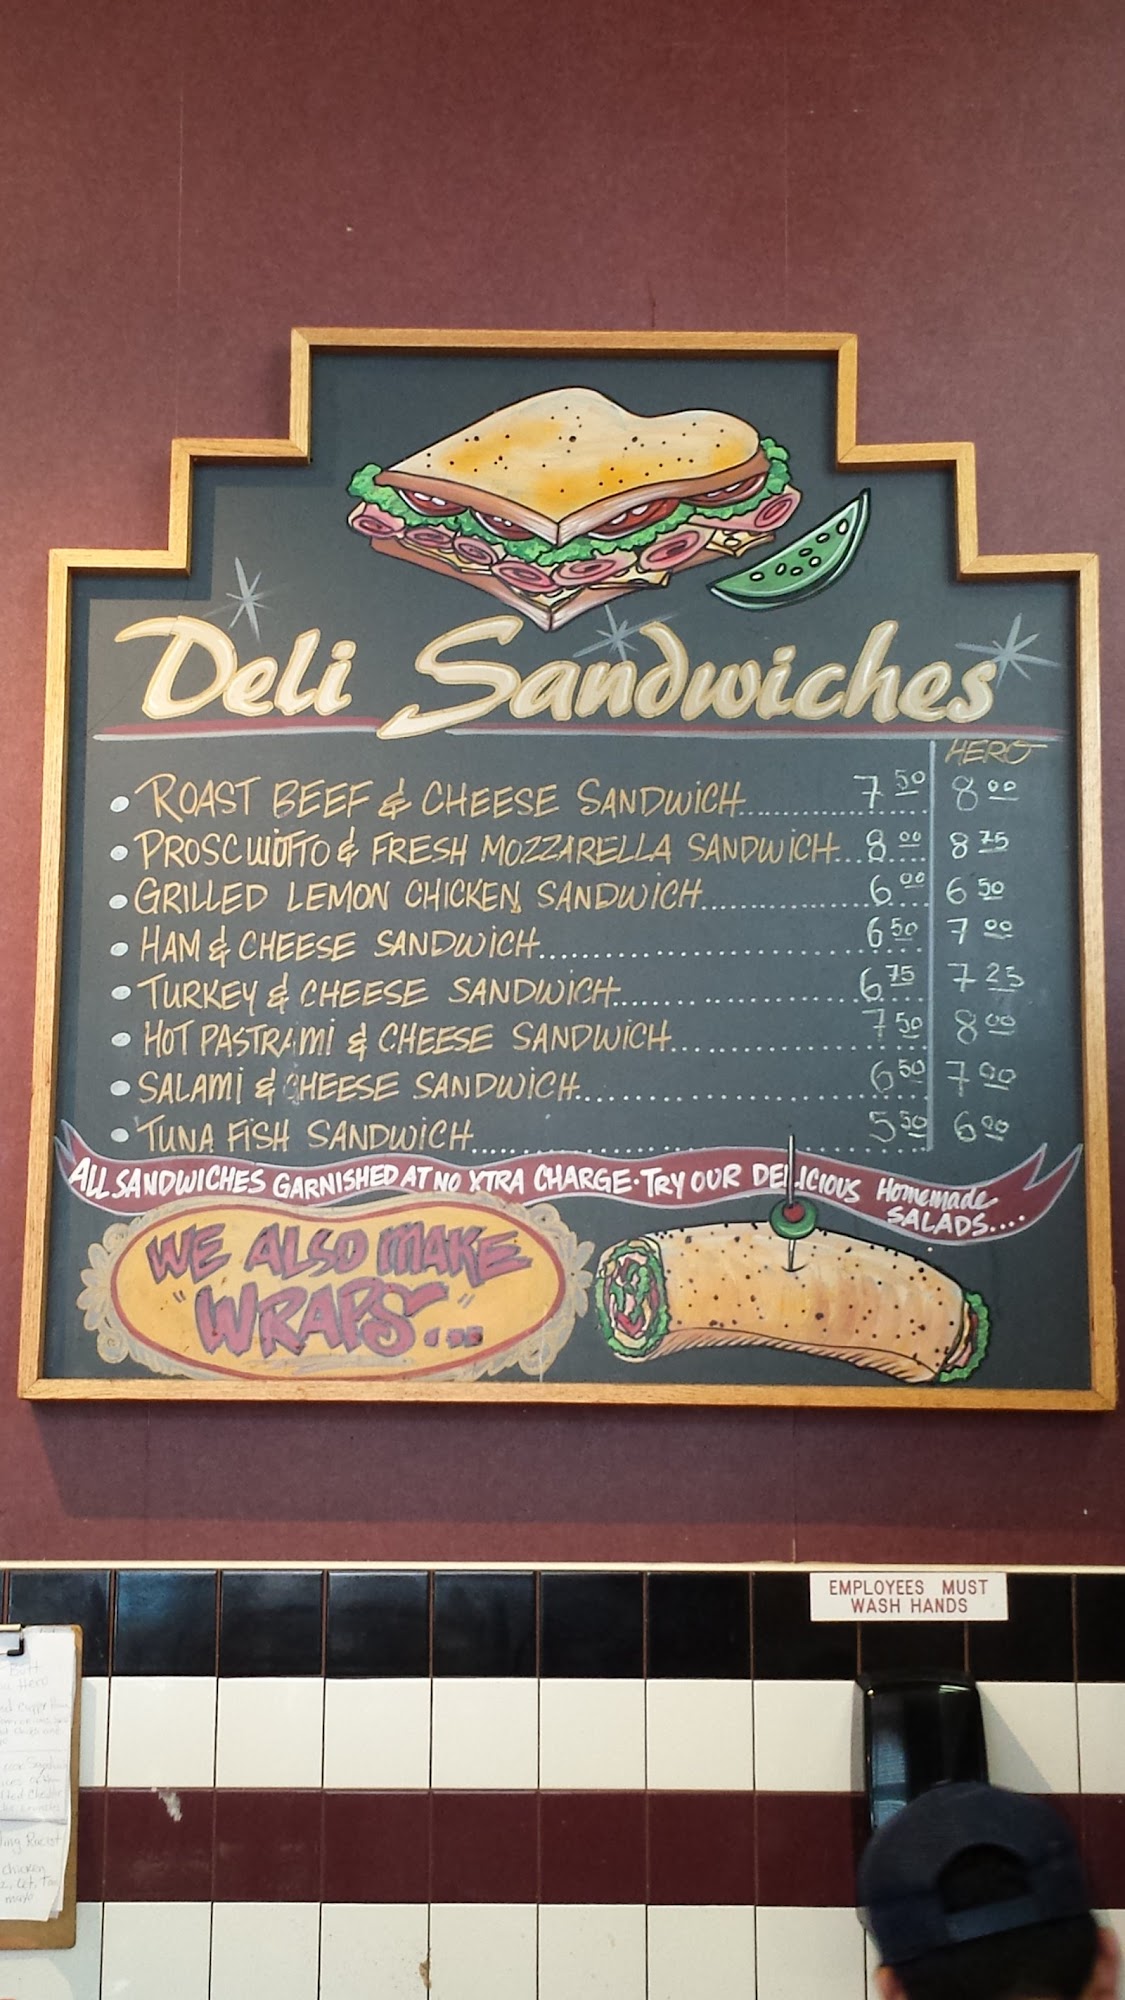 Deli Sandwiches
HERO
• ROAST BEEF & CHEESE SANDWICH 7 50 8 00
• PROSCUIOTTO & FRESH MOZZARELLA SANDWICH 8 00 8 75
• GRILLED LEMON CHICKEN SANDWICH 6 00 6 50
• HAM & CHEESE SANDWICH 6 50 7 00
• TURKEY & CHEESE SANDWICH 6 75 7 25
• HOT PASTRAMI & CHEESE SANDWICH 7 50 8 00
• SALAMI & CHEESE SANDWICH 6 50 7 00
• TUNA FISH SANDWICH 5 50 6 00
ALL SANDWICHES GARNISHED AT NO XTRA CHARGE • TRY OUR DELICIOUS Homemade
SALADS....
WE ALSO MAKE
"WRAPS"...
EMPLOYEES MUST
WASH HANDS
Hero
chicken
mayo